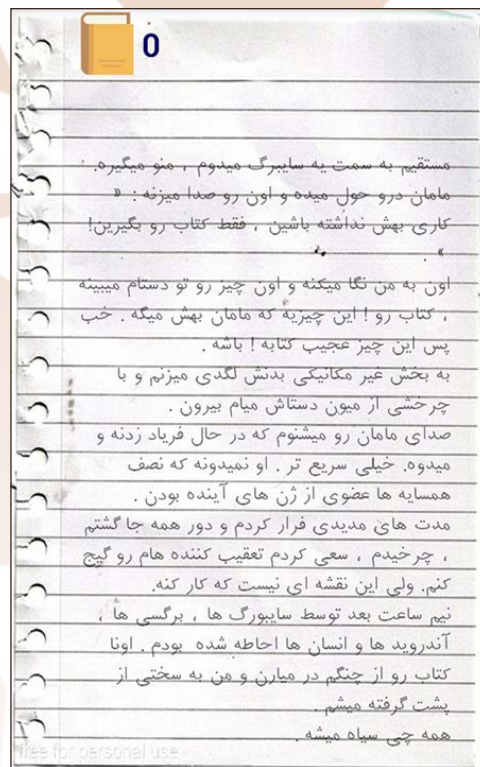 0
مستقیم به سمت یه سایبرگ میدوم ، منو میگیره.
مامان درو حول میده و اون رو صدا میزنه : «
کاری بهش نداشته باشین ، فقط کتاب رو بگیرین!
» .
اون به من نگا میکنه و اون چیز رو تو دستام میبینه
، کتاب رو ! این چیزیه که مامان بهش میگه . خب
پس این چیز عجیب کتابه ! باشه .
به بخش غیر مکانیکی بدنش لگدی میزنم و با
چرخشی از میون دستاش میام بیرون .
صدای مامان رو میشنوم که در حال فریاد زدنه و
میدوه. خیلی سریع تر . او نمیدونه که نصف
همسایه ها عضوی از ژن های آینده بودن .
مدت های مدیدی فرار کردم و دور همه جا گشتم
، چرخیدم ، سعی کردم تعقیب کننده هام رو گیج
کنم. ولی این نقشه ای نیست که کار کنه.
نیم ساعت بعد توسط سایبورگ ها ، برگسی ها ،
آندروید ها و انسان ها احاطه شده بودم . اونا
کتاب رو از چنگم در میارن و من به سختی از
پشت گرفته میشم .
همه چی سیاه میشه .
free for personal use